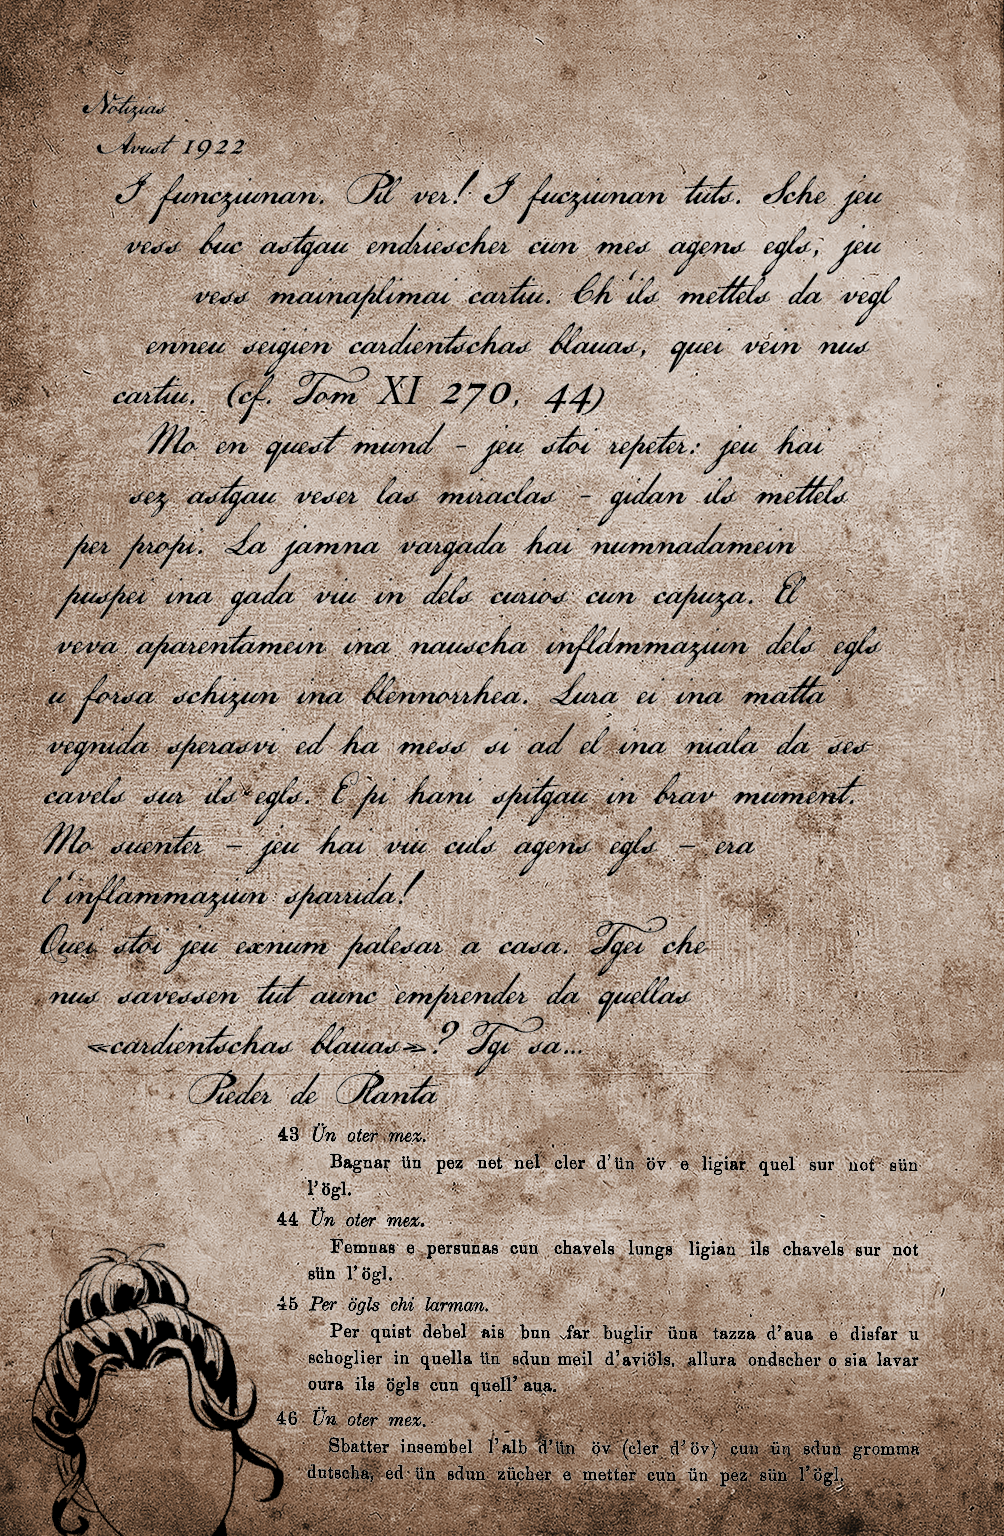 Notizias
Avust 1922
I funcziunan. Pil ver! I fucziunan tuts. Sche jeu
vess buc astgau endriescher cun mes agens egls, jeu
vess mainaplimai cartiu. Ch'ils mettels da vegl
enneu seigien cardientschas blauas, quei vein nus
cartiu. (cf. Tom XI 270, 44)
Mo en quest mund - jeu stoi repeter: jeu hai
sez astgau veser las miraclas - gidan ils mettels
per propi. La jamna vargada hai numnadamein
puspei ina gada viu in dels curios cun capuza. El
veva aparentamein ina nauscha inflammaziun dels egls
u forsa schizun ina blennorrhea. Lura ei ina matta
vegnida sperasvi ed ha mess si ad el ina niala da ses
cavels sur ils egls. E pi hani spitgau in brav mument.
Mo suenter - jeu hai viu culs agens egls - era
l'inflammaziun sparrida!
Quei stoi jeu exnum palesar a casa. Tgei che
nus savessen tut aunc emprender da quellas
«cardientschas blauas»? Tgi sa...
Pieder de Planta
43 Ün oter mez.
Bagnar ün pez net nel cler d'ün öv e ligiar quel sur not sün
l'ögl.
44 Ün oter mez.
Femnas e persunas cun chavels lungs ligian ils chavels sur not
sün l'ögl.
45 Per ögls chi larman.
Per quist debel ais bun far buglir üna tazza d'aua e disfar u
schoglier in quella ün sdun meil d'aviöls, allura ondscher o sia lavar
oura ils ögls cun quell' aua.
46 Ün oter mez.
Sbatter insembel l'alb d'ün öv (cler d'öv) cun ün sdun gromma
dutscha, ed ün sdun zücher e metter cun ün pez sün l'ögl.